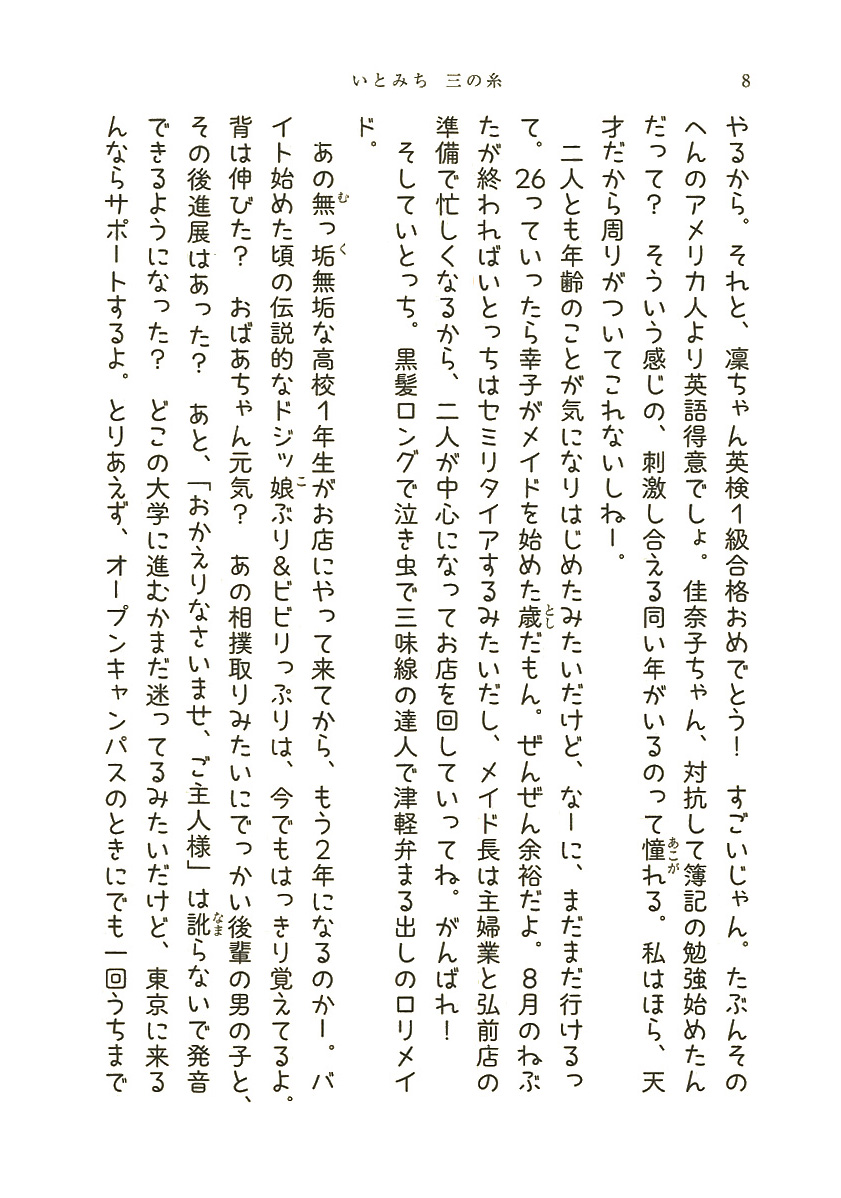 いとみち 三の糸
8
やるから。それと、凛ちゃん英検1級合格おめでとう！ すごいじゃん。たぶんその
へんのアメリカ人より英語得意でしょ。佳奈子ちゃん、対抗して簿記の勉強始めたん
だって？ そういう感じの、刺激し合える同い年がいるのって憧れる。私はほら、天
あこが
才だから周りがついてこれないしねー。
二人とも年齢のことが気になりはじめたみたいだけど、なーに、まだまだ行けるっ
て。26っていったら幸子がメイドを始めた歳だもん。ぜんぜん余裕だよ。8月のねぶ
とし
たが終わればいとっちはセミリタイアするみたいだし、メイド長は主婦業と弘前店の
準備で忙しくなるから、二人が中心になってお店を回していってね。がんばれ！
そしていとっち。黒髪ロングで泣き虫で三味線の達人で津軽弁まる出しのロリメイ
ド。
あの無っ垢無垢な高校1年生がお店にやって来てから、もう2年になるのかー。バ
む
く
イト始めた頃の伝説的なドジッ娘ぶり＆ビビりっぷりは、今でもはっきり覚えてるよ。
こ
背は伸びた？ おばあちゃん元気？ あの相撲取りみたいにでっかい後輩の男の子と、
その後進展はあった？ あと、「おかえりなさいませ、ご主人様」は訛らないで発音
なま
できるようになった？ どこの大学に進むかまだ迷ってるみたいだけど、東京に来る
んならサポートするよ。とりあえず、オープンキャンパスのときにでも一回うちまで